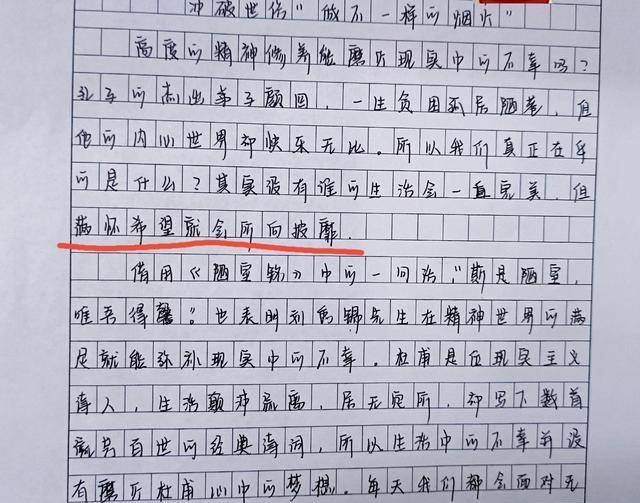 冲破世俗"做不一样的烟火"
高度的精神修养能磨灭现实中的不幸吗？
孔子的杰出弟子颜回，一生贫困孤居陋巷，但
他的内心世界却快乐无比。所以我们真正在乎
的是什么？其实没有谁的生活会一直完美，但
满怀希望就会所向披靡.
借用《陋室铭》中的一句话，"斯是陋室，
唯吾得馨"。也表明刘禹锡先生在精神世界的满
足就能弥补现实中的不幸。杜甫是位现实主义
诗人，生活颠沛流离，居无定所，却写下数首
流芳百世的经典诗词，所以生活中的不幸并没
有磨灭杜甫心中的梦想。每天我们都会面对无